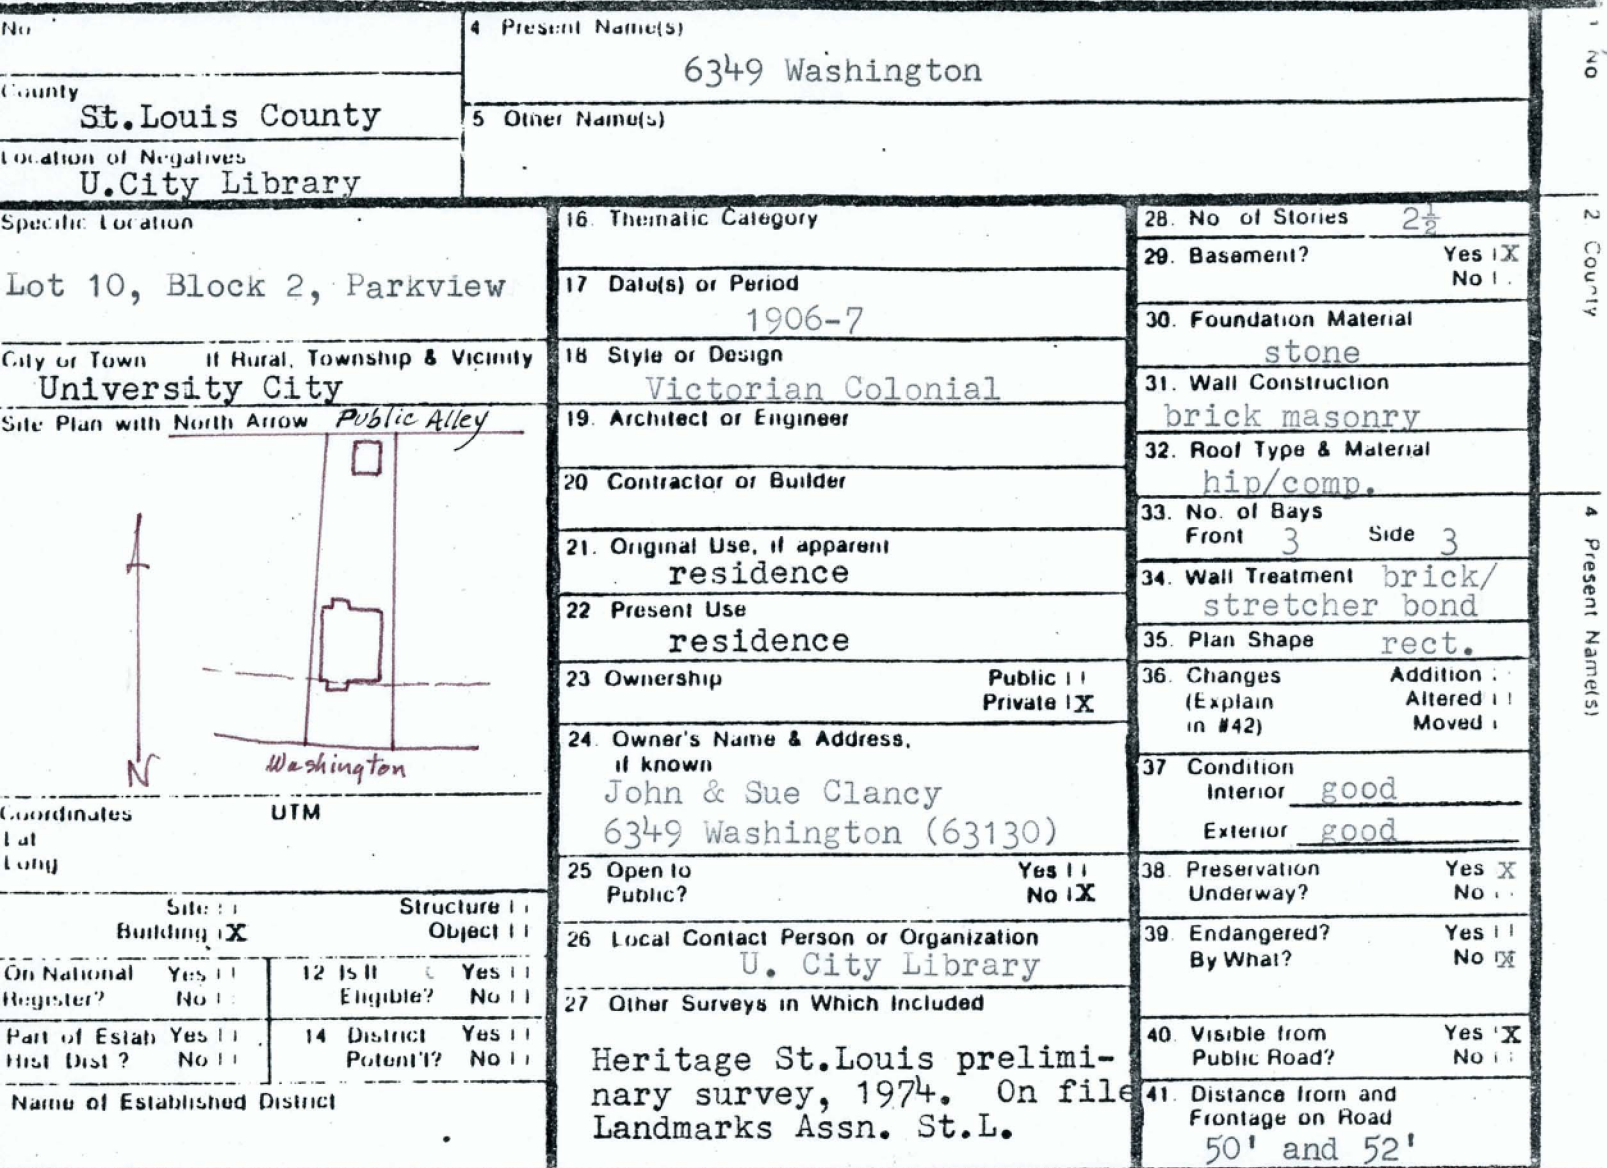 No
4 Present Name(s)
6349 Washington
County
St.Louis County
5 Other Name(s)
Location of Negatives
U.City Library
Specific Location
Lot 10, Block 2, Parkview
City or Town If Rural, Township & Vicinity
University City
Site Plan with North Arrow
Public Alley
N
Washington
Coordinates UTM
Lat
Long
Site
Structure
Building X
Object
On National Register? Yes No
12 Is It Eligible? Yes No
Part of Estab Hist Dist? Yes No
14 District Potent'l? Yes No
Name of Established District
16. Thematic Category
17 Date(s) or Period
1906-7
18 Style or Design
Victorian Colonial
19. Architect or Engineer
20 Contractor or Builder
21. Original Use, if apparent
residence
22 Present Use
residence
23 Ownership Public
Private X
24. Owner's Name & Address,
if known
John & Sue Clancy
6349 Washington (63130)
25 Open to Yes
Public? No X
26 Local Contact Person or Organization
U. City Library
27 Other Surveys in Which Included
Heritage St.Louis prelimi-
nary survey, 1974. On file
Landmarks Assn. St.L.
28. No of Stories 2½
29. Basement? Yes X
No
30. Foundation Material
stone
31. Wall Construction
brick masonry
32. Roof Type & Material
hip/comp.
33. No. of Bays
Front 3 Side 3
34. Wall Treatment brick/
stretcher bond
35. Plan Shape rect.
36. Changes Addition
(Explain Altered
in #42) Moved
37 Condition
Interior good
Exterior good
38. Preservation Yes X
Underway? No
39. Endangered? Yes
By What? No X
40. Visible from Yes X
Public Road? No
41. Distance from and
Frontage on Road
50' and 52'
1 No
2 County
4 Present Name(s)